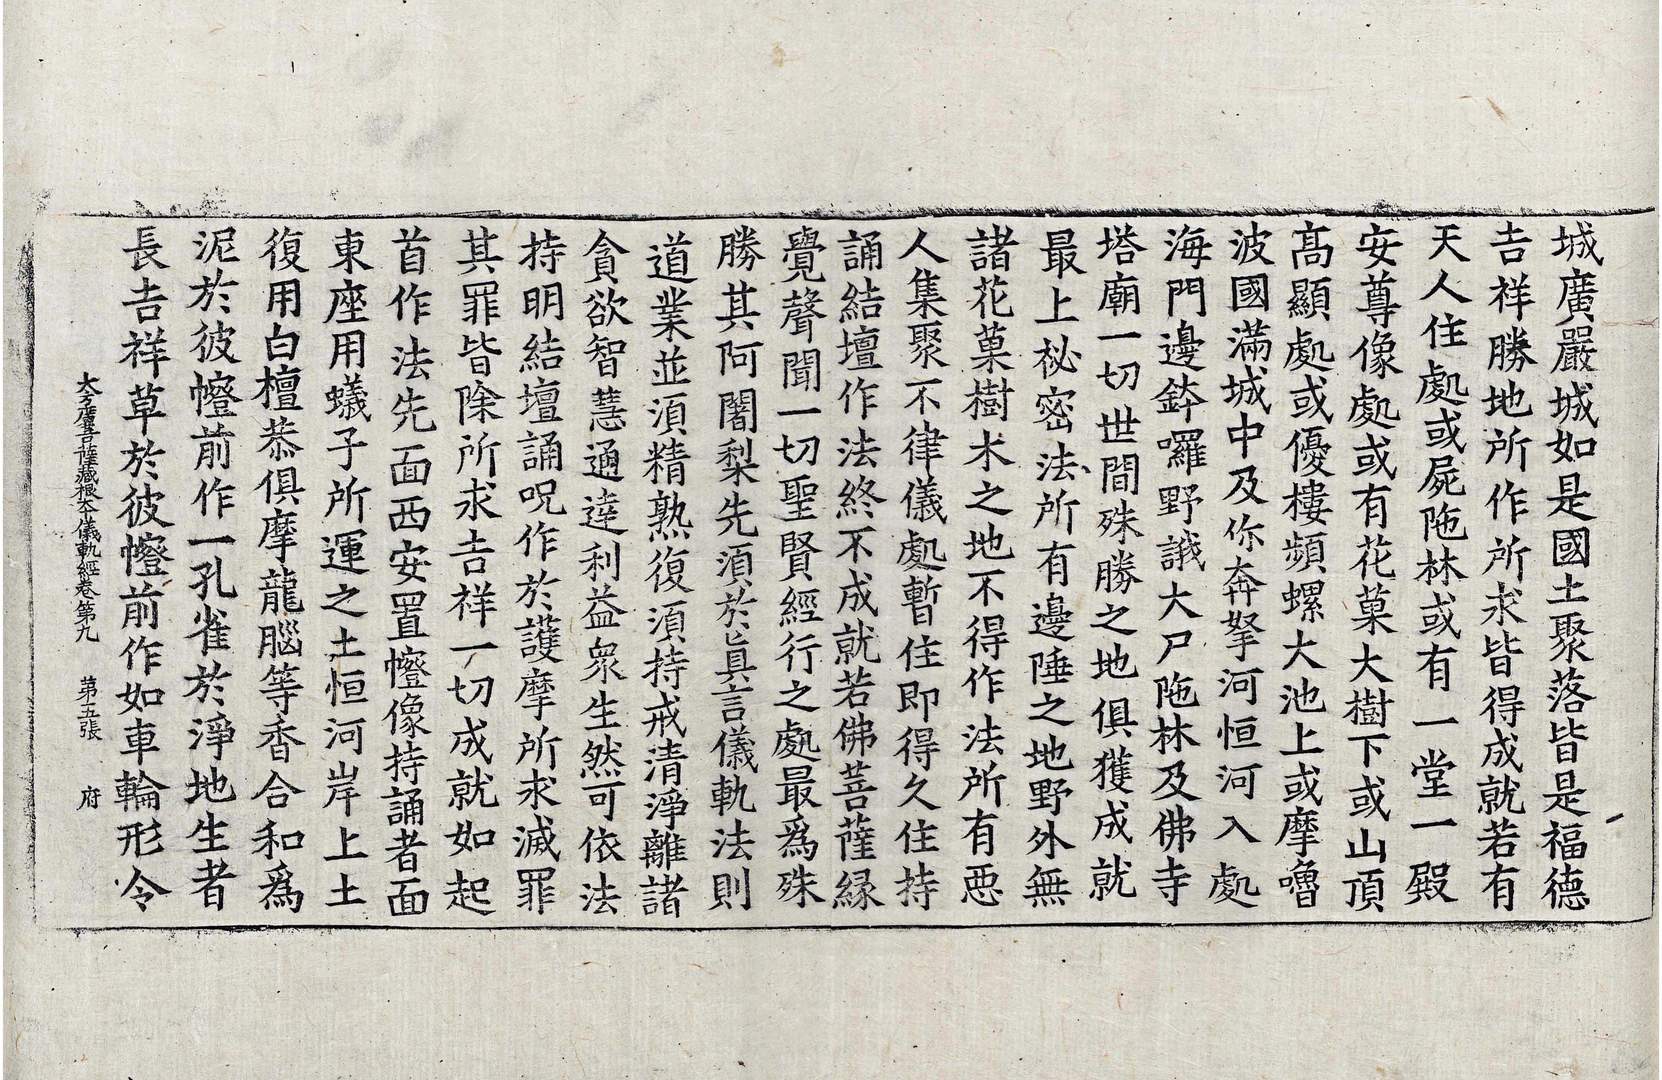 城廣嚴城如是國土聚落皆是福德
吉祥勝地所作所求皆得成就若有
天人住處或屍陁林或有一堂一殿
安尊像處或有花菓大樹下或山頂
髙顯處或優樓頻螺大池上或摩嚕
波國滿城中及你奔拏河恒河入處
海門邊鉢囉野誐大尸陁林及佛寺
塔廟一切世間殊勝之地俱獲成就
最上祕密法所有邊陲之地野外無
諸花菓樹木之地不得作法所有惡
人集聚不律儀處暫住即得久住持
誦結壇作法終不成就若佛菩薩縁
覺聲聞一切聖賢經行之處最爲殊
勝其阿闍梨先須於真言儀軌法則
道業並須精熟復須持戒清淨離諸
貪欲智慧通達利益衆生然可依法
持明結壇誦呪作於護摩所求滅罪
其罪皆除所求吉祥一切成就如起
首作法先面西安置㡧像持誦者面
東座用蟻子所運之土恒河岸上土
復用白檀恭俱摩龍腦等香合和爲
泥於彼㡧前作一孔雀於淨地生者
長吉祥草於彼㡧前作如車輪形令
大方廣菩薩藏根本儀軌經卷第九　第五張　府